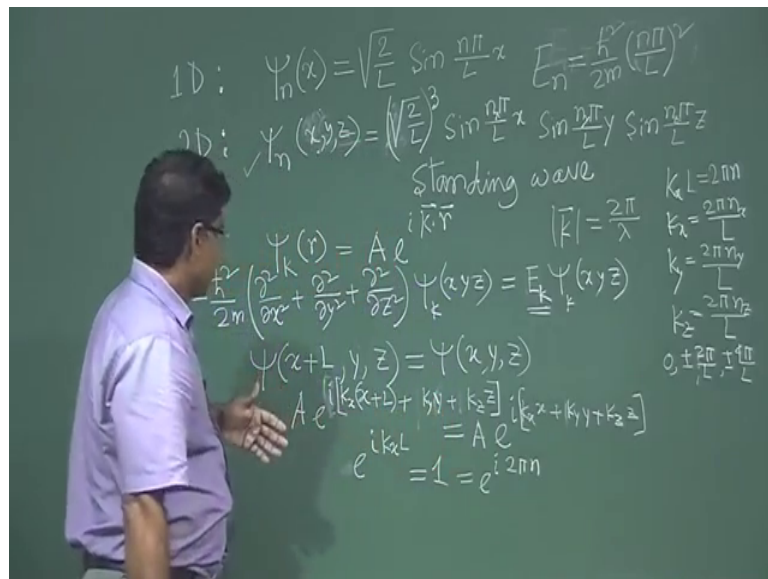 1D: ψn(x) = √(2/L) Sin nπ/L x   En = ħ²/2m (nπ/L)²
D: ✓ ψn(x,y,z) = (√(2/L))³ Sin nxπ/L x Sin nyπ/L y Sin nzπ/L z
Standing wave
ψk(r) = A e^{i k⃗·r⃗}   |k⃗| = 2π/λ
-ħ²/2m (∂²/∂x² + ∂²/∂y² + ∂²/∂z²) ψk(xyz) = Ek ψk(xyz)
ψ(x+L, y, z) = ψ(x,y,z)
A e^{i[kx(x+L) + kyy + kz z]} = A e^{i[kxx + kyy + kz z]}
e^{ikxL} = 1 = e^{i2πn}
kxL = 2πn
kx = 2πnx/L
ky = 2πny/L
kz = 2πnz/L
0, ±2π/L, ±4π/L